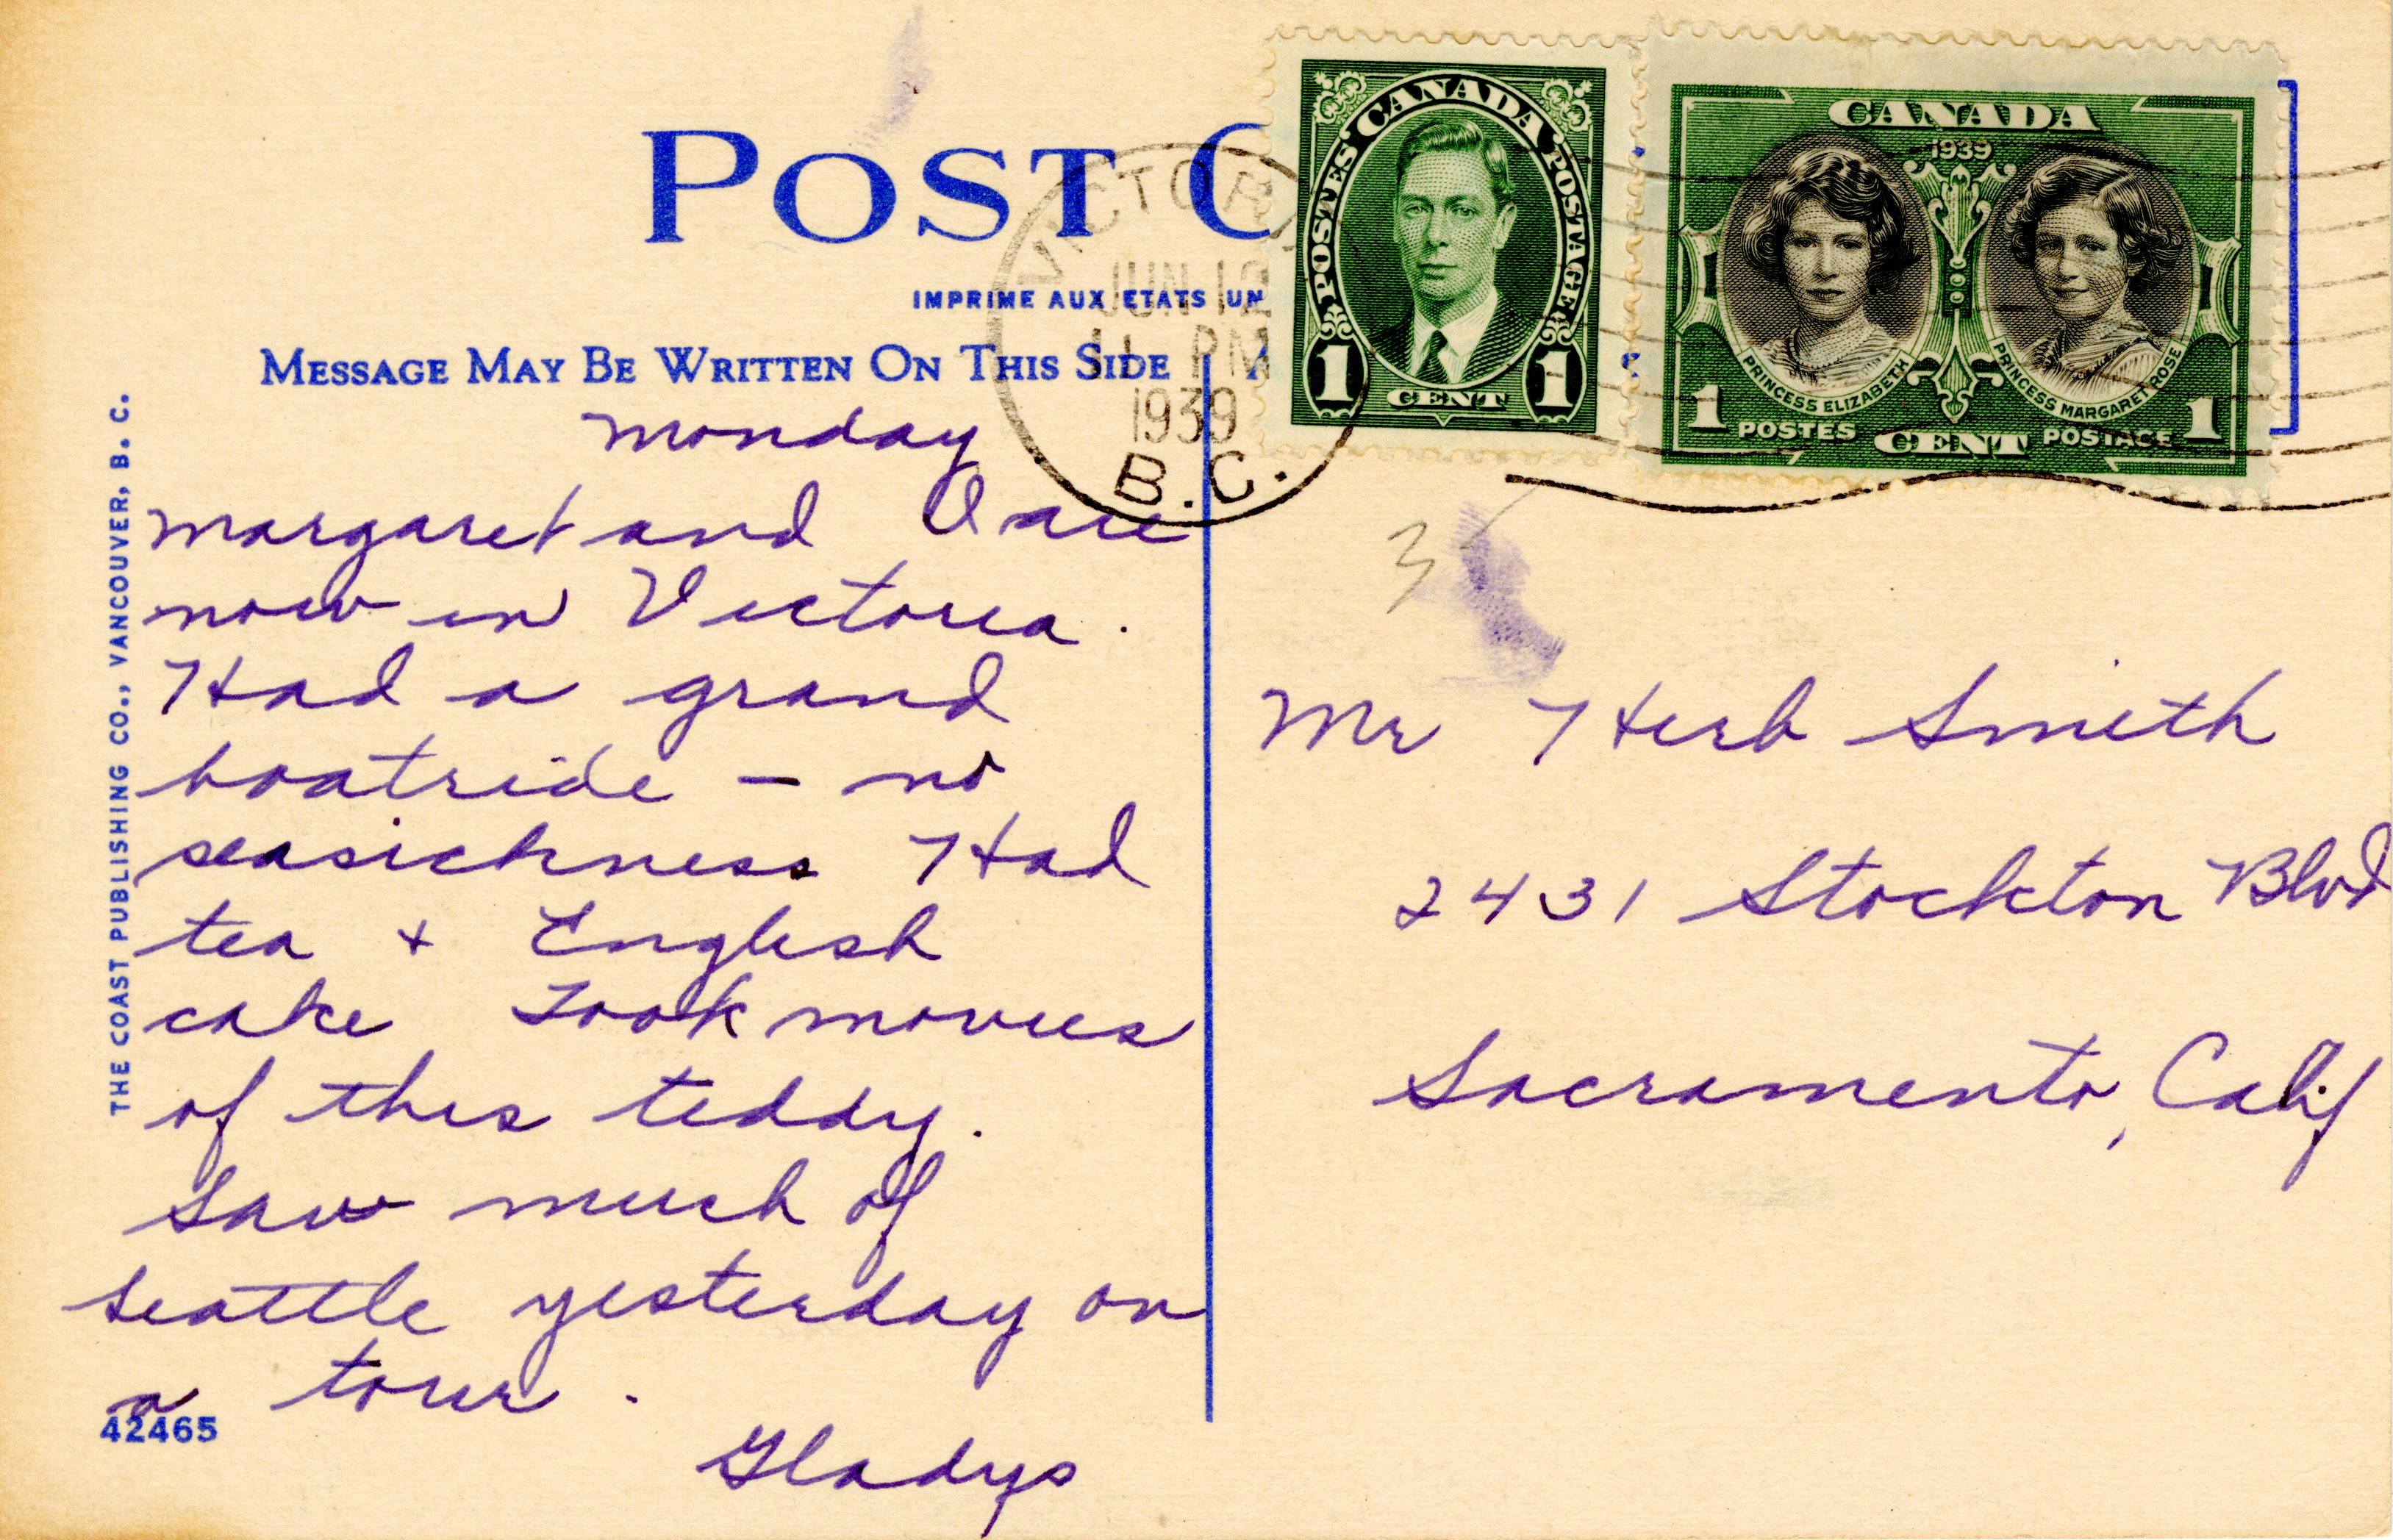 POST C
IMPRIME AUX ETATS UN
MESSAGE MAY BE WRITTEN ON THIS SIDE
VICTORIA
JUN 12
11 PM
1939
B.C.
CANADA
POSTES POSTAGE
1 CENT 1
CANADA
1939
PRINCESS ELIZABETH
PRINCESS MARGARET ROSE
1 POSTES CENT POSTAGE 1
THE COAST PUBLISHING CO., VANCOUVER, B. C.
Monday
Margaret and I are
now in Victoria.
Had a grand
boatride – no
seasickness Had
tea + English
cake Took movies
of this teddy.
Saw much of
Seattle yesterday on
a tour.
Gladys
42465
3
Mr Herb Smith
2431 Stockton Blvd
Sacramento, Calif